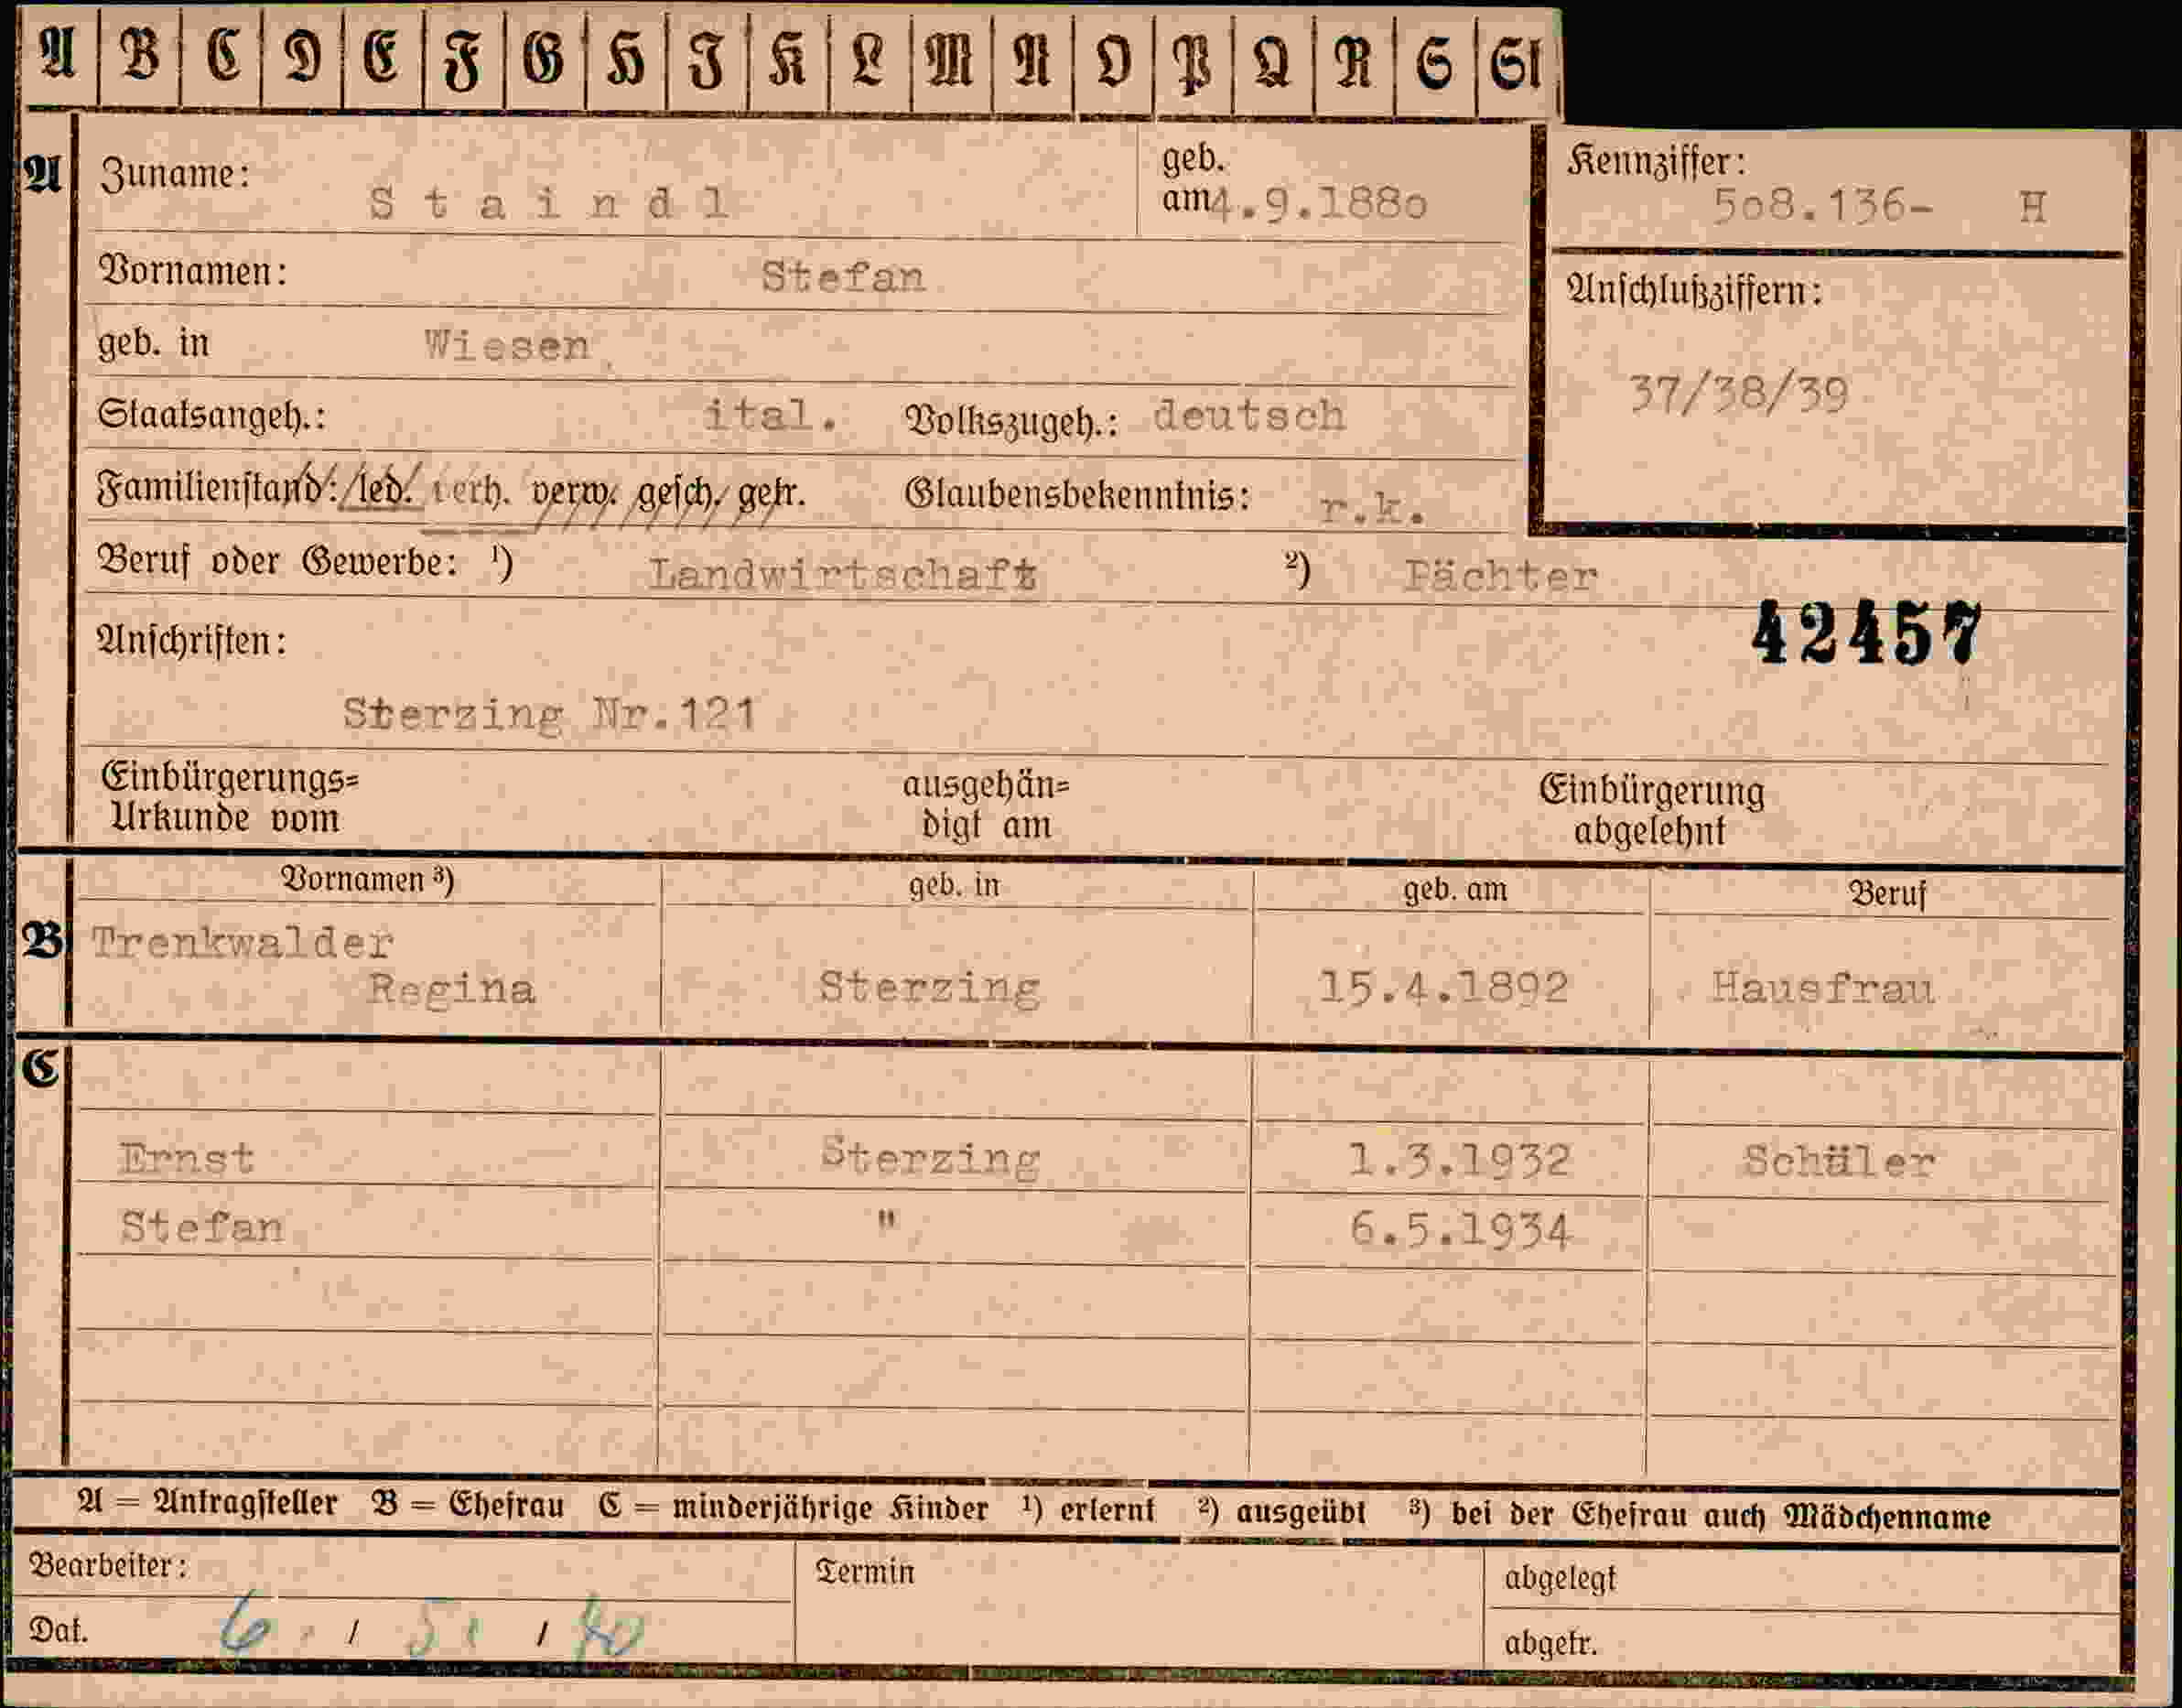 A B C D E F G H I K L M N O P Q R S St
A Zuname: Staindl geb. am 4.9.1880 Kennziffer: 508.136- H
Vornamen: Stefan
Anschlußziffern:
geb. in Wiesen
37/38/39
Staatsangeh.: ital. Volkszugeh.: deutsch
Familienstand: led. verh. verw. gesch. getr. Glaubensbekenntnis: r.k.
Beruf oder Gewerbe: ¹) Landwirtschaft ²) Pächter
42457
Anschriften:
Sterzing Nr.121
Einbürgerungs= ausgehän= Einbürgerung
Urkunde vom digt am abgelehnt
Vornamen ³) geb. in geb. am Beruf
B Trenkwalder
Regina Sterzing 15.4.1892 Hausfrau
C
Ernst Sterzing 1.3.1932 Schüler
Stefan " 6.5.1934
A = Antragsteller B = Ehefrau C = minderjährige Kinder ¹) erlernt ²) ausgeübt ³) bei der Ehefrau auch Mädchenname
Bearbeiter: Termin abgelegt
Dat. 6. / 5. / 40 abgetr.